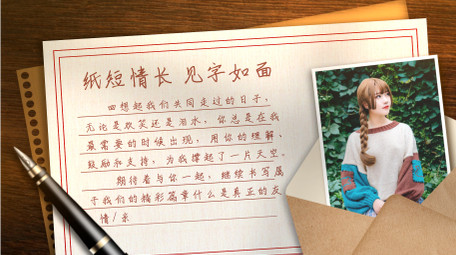 纸短情长 见字如面
回想起我们共同走过的日子，
无论是欢笑还是泪水，你总是在我
最需要的时候出现，用你的理解、
鼓励和支持，为我撑起了一片天空。
期待着与你一起，继续书写属
于我们的精彩篇章什么是真正的友
情/亲